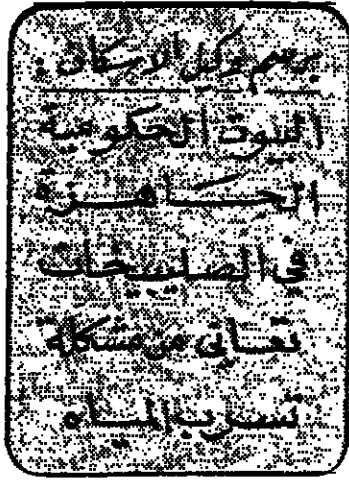 برسم وكيل الاسكان :
البيوت الحكومية
الجاهزة
في الصليبيخات
تعاني من مشكلة
تسرب المياه